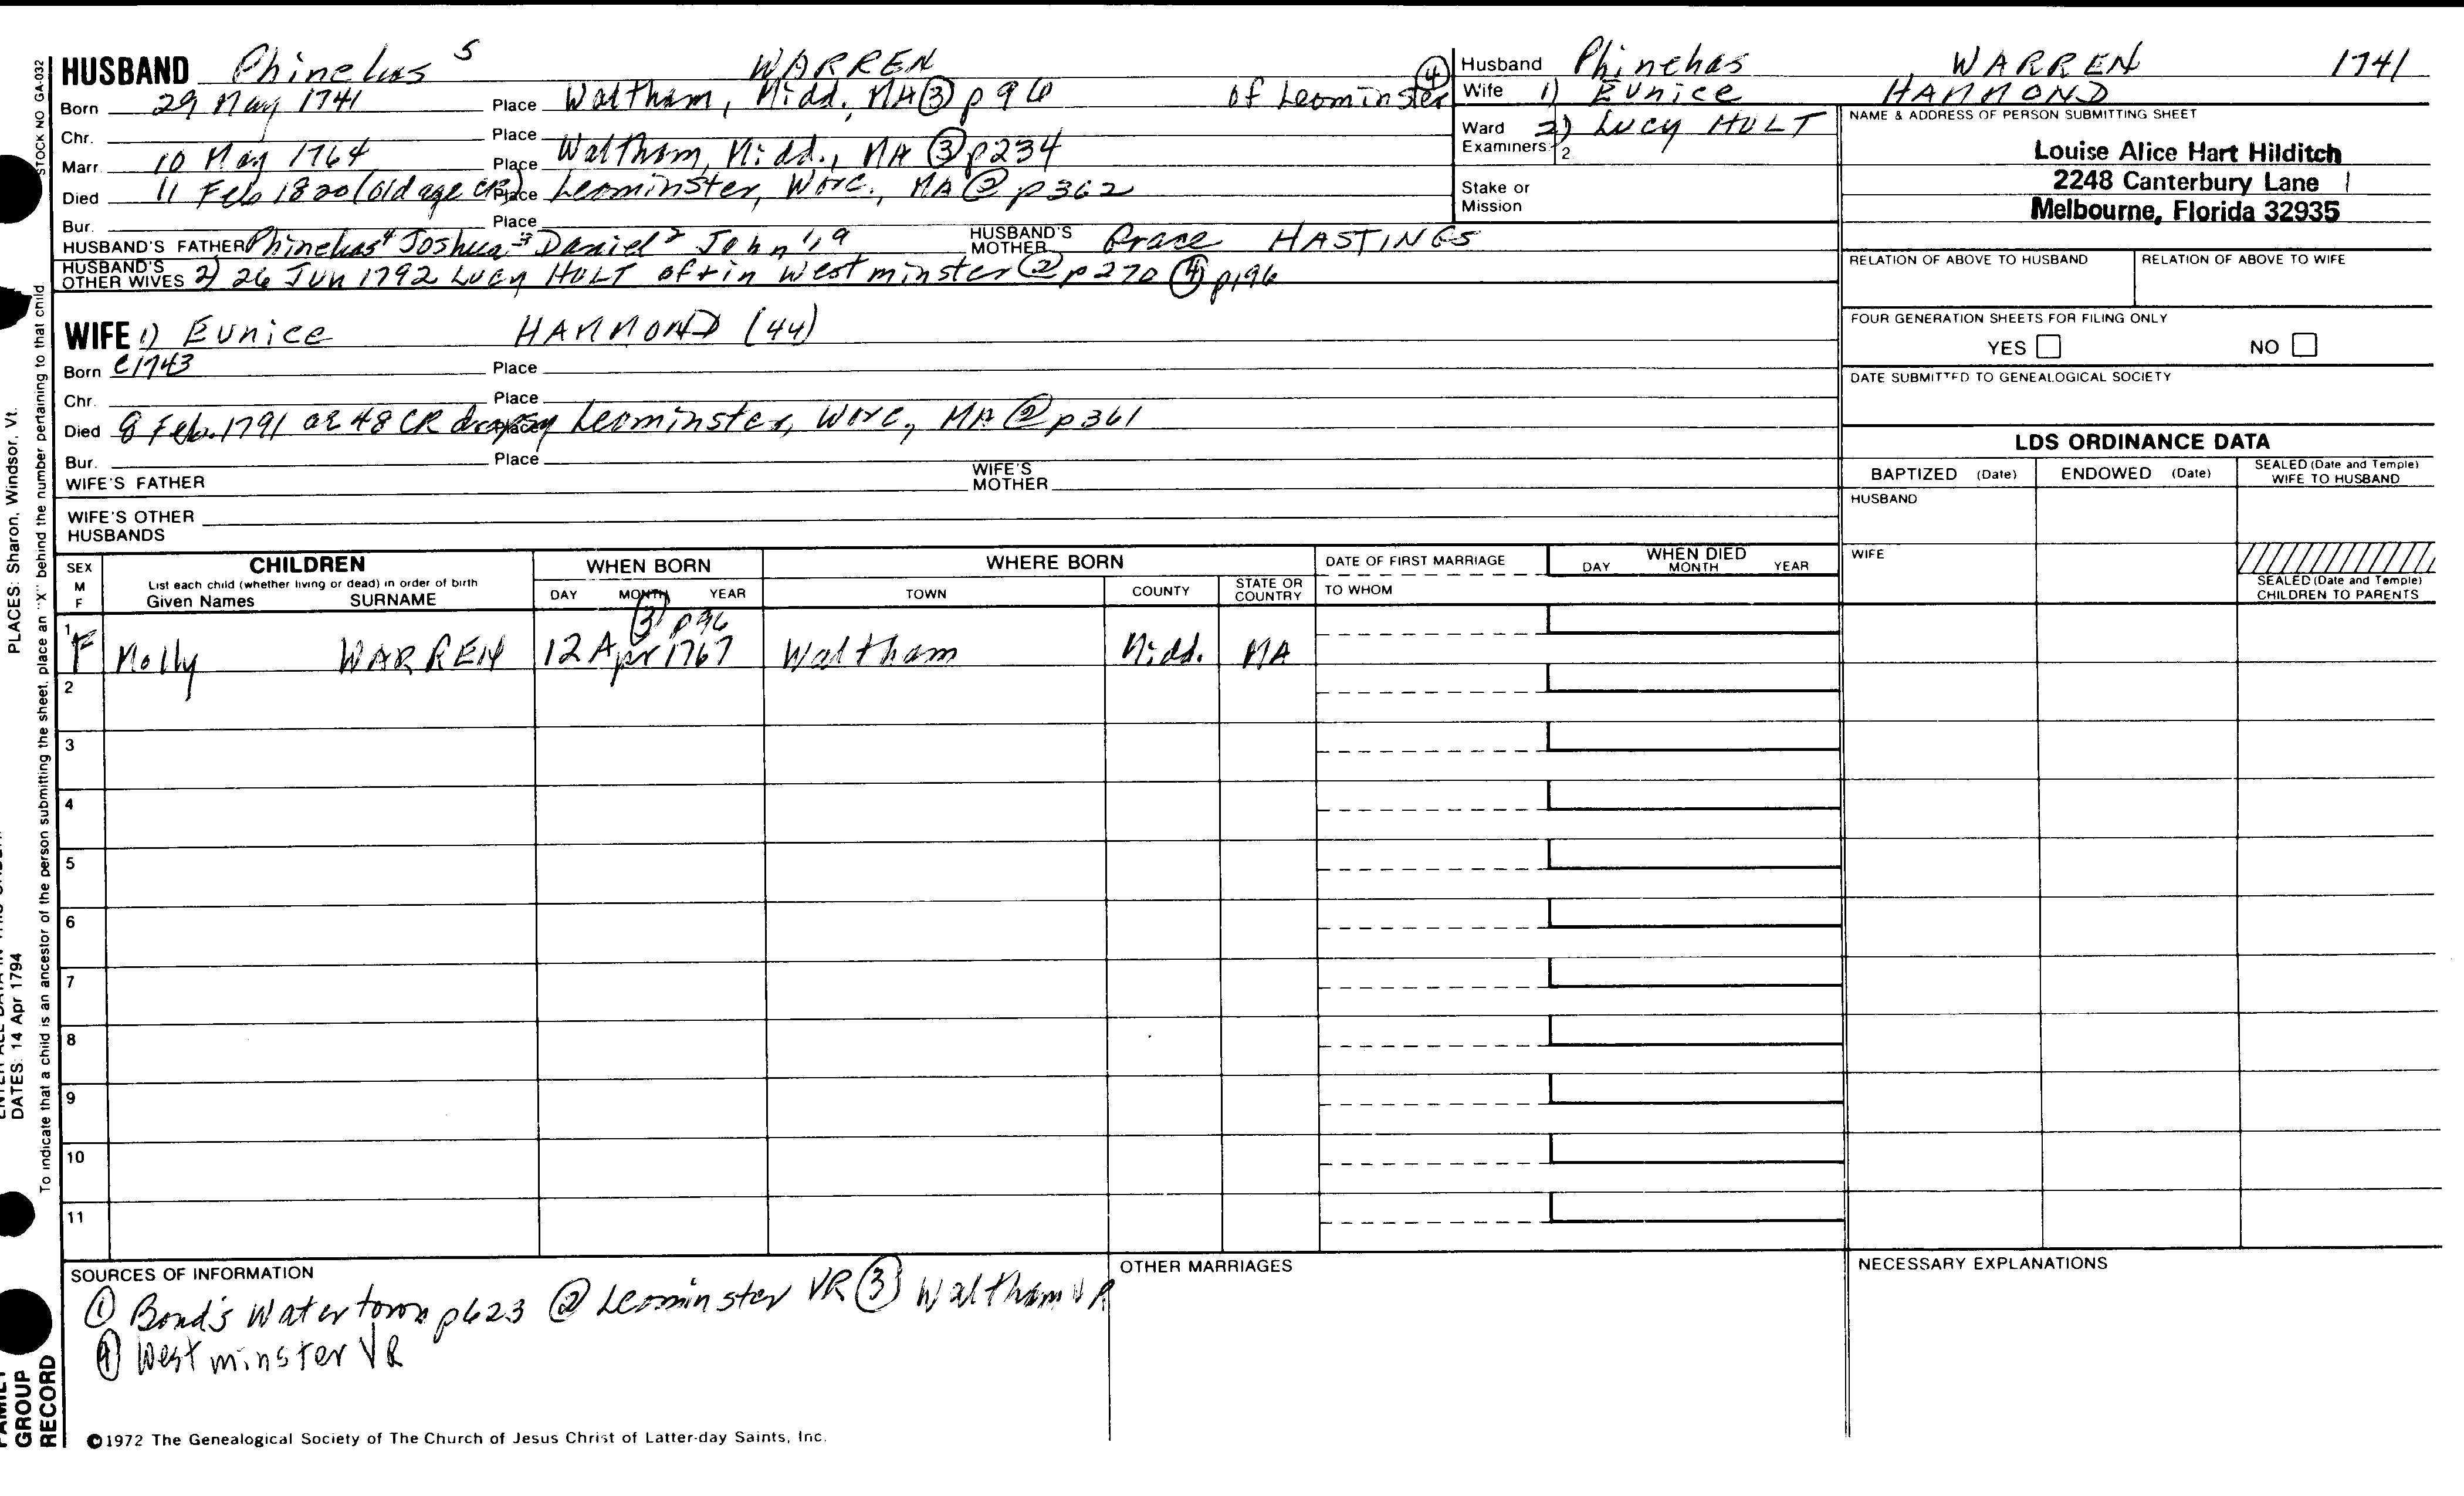 HUSBAND Phinehas 5 WARREN
Born 29 May 1741 Place Waltham, Midd., MA ③ p 96 of Leominster ④
Chr. Place
Marr. 10 May 1764 Place Waltham, Midd., MA ③ p234
Died 11 Feb 1820 (old age CR) Place Leominster, Worc., MA ② p362
Bur. Place
HUSBAND'S FATHER Phinehas 4 Joshua 3 Daniel 2 John 1,9 HUSBAND'S MOTHER Grace HASTINGS
HUSBAND'S OTHER WIVES 2) 26 Jun 1792 Lucy HOLT of+in Westminster ② p270 ④ p196
WIFE 1) Eunice HAMMOND (44)
Born c1743 Place
Chr. Place
Died 8 Feb. 1791 ae 48 CR dropsy Place Leominster, Worc., MA ② p361
Bur. Place
WIFE'S FATHER WIFE'S MOTHER
WIFE'S OTHER HUSBANDS
Husband Phinehas WARREN 1741
Wife 1) Eunice HAMMOND
Ward 2) Lucy HOLT
Examiners: 2
Stake or Mission
NAME & ADDRESS OF PERSON SUBMITTING SHEET
Louise Alice Hart Hilditch
2248 Canterbury Lane
Melbourne, Florida 32935
RELATION OF ABOVE TO HUSBAND RELATION OF ABOVE TO WIFE
FOUR GENERATION SHEETS FOR FILING ONLY
YES NO
DATE SUBMITTED TO GENEALOGICAL SOCIETY
LDS ORDINANCE DATA
BAPTIZED (Date) ENDOWED (Date) SEALED (Date and Temple) WIFE TO HUSBAND
HUSBAND
WIFE
SEALED (Date and Temple) CHILDREN TO PARENTS
SEX M F CHILDREN
List each child (whether living or dead) in order of birth
Given Names SURNAME
WHEN BORN
DAY MONTH YEAR
WHERE BORN
TOWN COUNTY STATE OR COUNTRY
DATE OF FIRST MARRIAGE
TO WHOM
WHEN DIED
DAY MONTH YEAR
③ p96
1 F Molly WARREN 12 Apr 1767 Waltham Midd. MA
2
3
4
5
6
7
8
9
10
11
SOURCES OF INFORMATION
① Bond's Watertown p623 ② Leominster VR ③ Waltham VR
④ Westminster VR
OTHER MARRIAGES
NECESSARY EXPLANATIONS
©1972 The Genealogical Society of The Church of Jesus Christ of Latter-day Saints, Inc.
STOCK NO. GA-032
To indicate that a child is an ancestor of the person submitting the sheet, place an "X" behind the number pertaining to that child
PLACES: Sharon, Windsor, Vt.
DATES: 14 Apr 1794
GROUP
RECORD